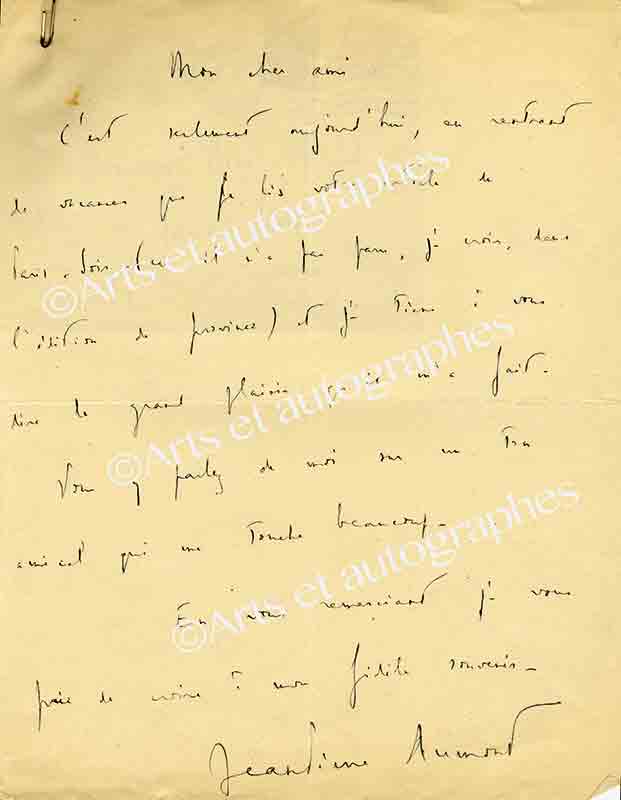 Mon cher ami
C'est seulement aujourd'hui, en rentrant
de vacances que je lis votre article de
Paris-Soir (car il n'a pas paru, je crois, dans
l'édition de province) et je tiens à vous
dire le grand plaisir qu'il m'a fait.
Vous y parlez de moi sur un ton
amical qui me touche beaucoup.
En vous remerciant je vous
prie de croire à mon fidèle souvenir.
Jean Pierre Aumont
©Arts et autographes
©Arts et autographes
©Arts et autographes